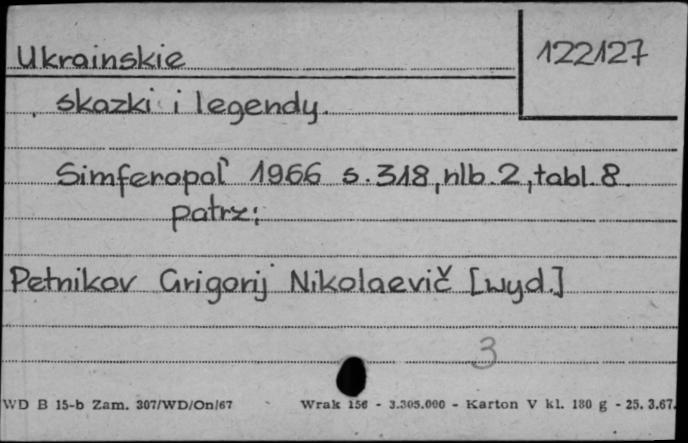 Ukrainskie
122127
skazki i legendy.
Simferopol' 1966 s.318, nlb.2, tabl.8.
patrz:
Petnikov Grigorij Nikolaevič [wyd.]
3
WD B 15-b Zam. 307/WD/On/67 Wrak 156 - 3.305.000 - Karton V kl. 180 g - 25. 3.67.